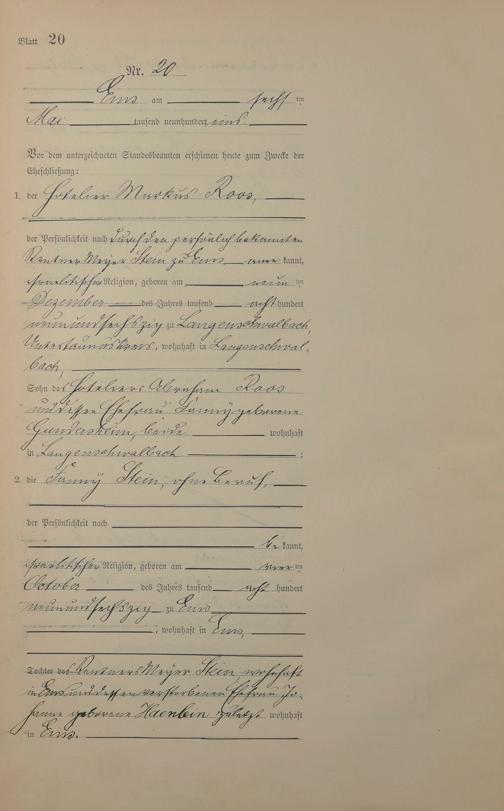 Blatt 20
Nr. 20
Ems am sechs ten
Mai tausend neunhundert eins
Vor dem unterzeichneten Standesbeamten erschienen heute zum Zwecke der
Eheschließung:
1. der Hotelier Markus Roos,
der Persönlichkeit nach durch den persönlich bekannten
Rentner Meyer Stein zu Ems aner kannt,
israelitischer Religion, geboren am neun ten
Dezember des Jahres tausend acht hundert
neunundsechszig zu Langenschwalbach,
Untertaunuskreis, wohnhaft in Langenschwal-
bach,
Sohn des Hoteliers Abraham Roos
und dessen Ehefrau Fanny geborene
Gundersheim, beide wohnhaft
in Langenschwalbach ;
2. die Fanny Stein, ohne Beruf,
der Persönlichkeit nach
be kannt,
israelitischer Religion, geboren am vier ten
October des Jahres tausend acht hundert
neunundsechszig zu Ems
; wohnhaft in Ems,
Tochter des Rentners Meyer Stein wohnhaft
in Ems und dessen verstorbenen Ehefrau Jo-
hanne geborene Haenlein zuletzt wohnhaft
in Ems.